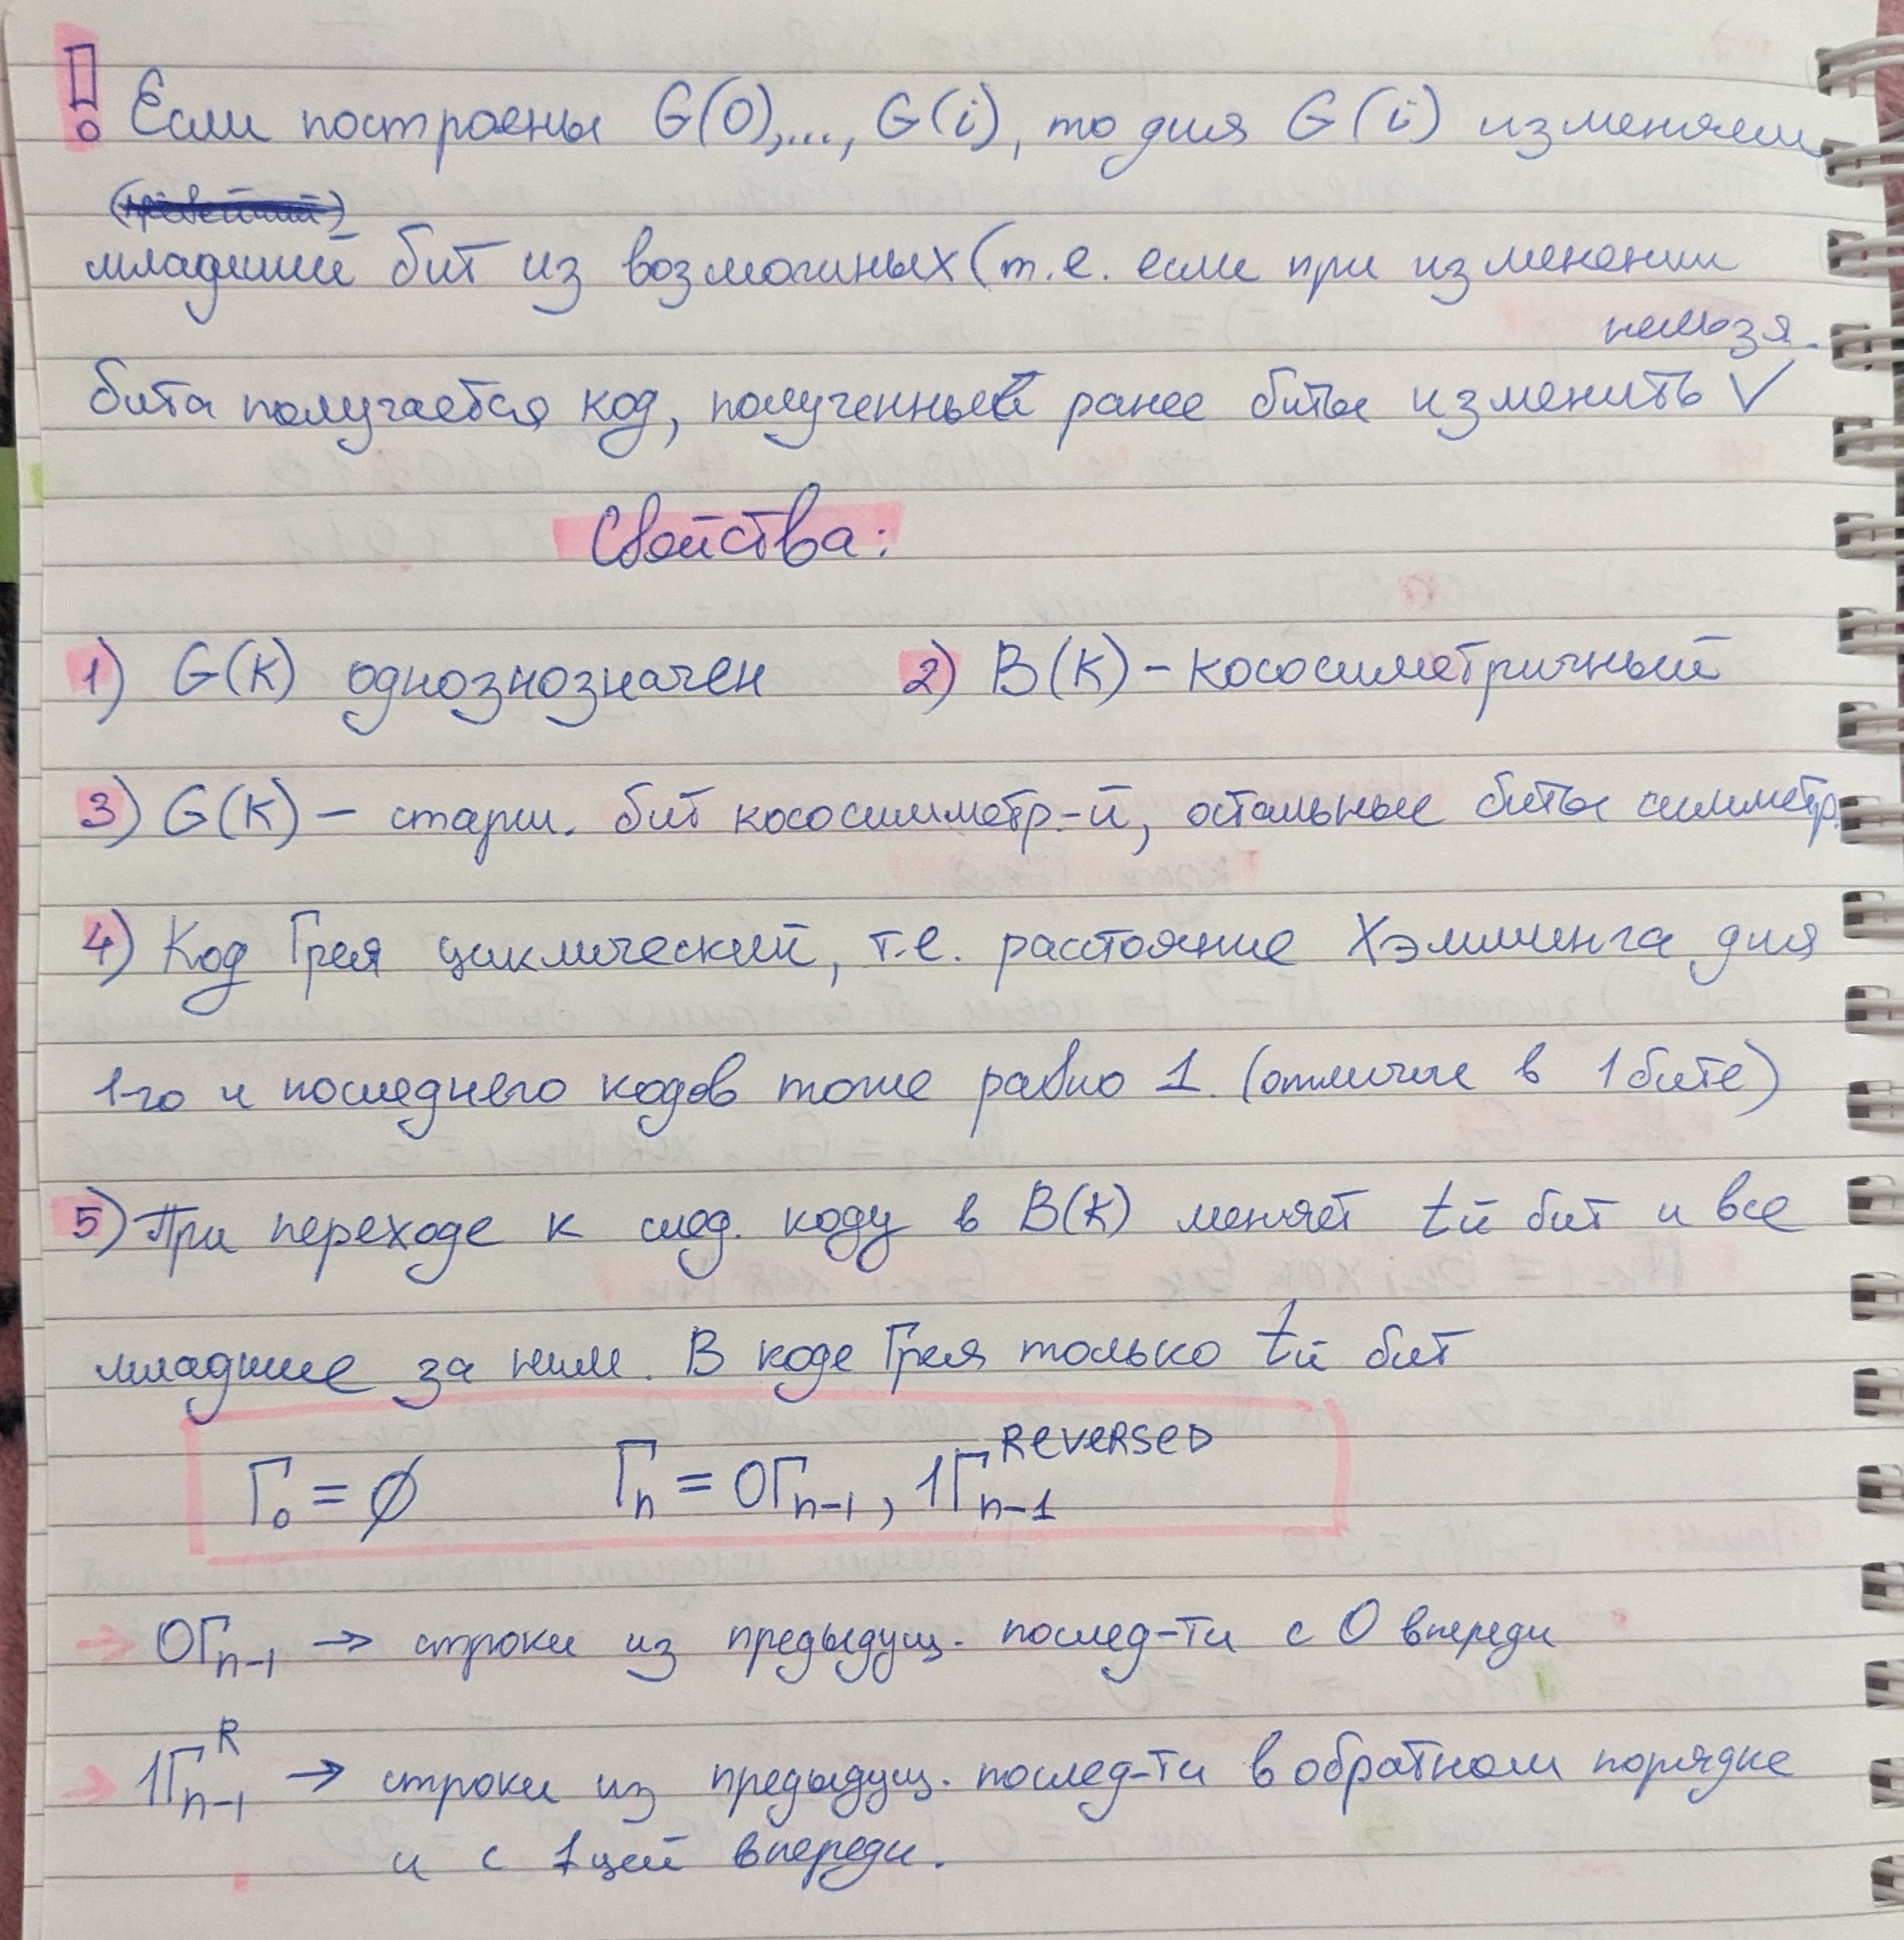 ! Если построены G(0),..., G(i), то для G(i) изменяем
младший бит из возможных (т.е. если при изменении
нельзя
бита получается код, полученный ранее биты изменить ✓
Свойства:
1) G(K) однознозначен 2) B(K) – кососиметричный
3) G(K) – старш. бит кососимметр.-й, остальные биты симметр.
4) Код Грея циклический, т.е. расстояние Хэмминга для
1-го и последнего кодов тоже равно 1. (отличие в 1 бите)
5) При переходе к след. коду в B(K) меняет tй бит и все
младшие за ним. В коде Грея только tй бит
Γ₀ = ∅ Γₙ = 0Γₙ₋₁, 1Γₙ₋₁ᴿᴱⱽᴱᴿˢᴱᴰ
→ 0Γₙ₋₁ → строки из предыдущ. послед-ти с 0 впереди
→ 1Γₙ₋₁ᴿ → строки из предыдущ. послед-ти в обратном порядке
и с 1цей впереди.